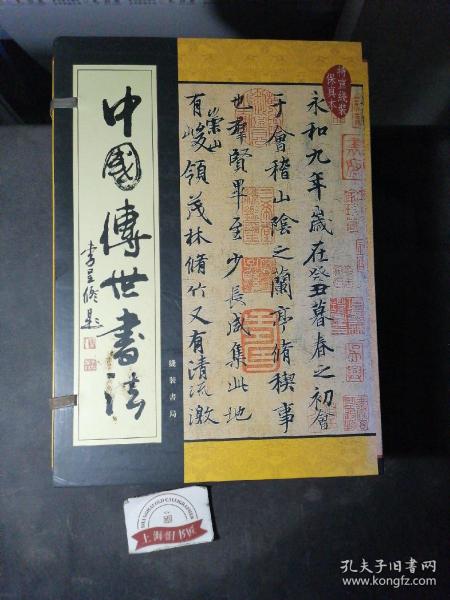 中國傳世書法
特宣綫裝
保真本
永和九年歲在癸丑暮春之初會
于會稽山陰之蘭亭脩稧事
也羣賢畢至少長咸集此地
有崇山峻領茂林脩竹又有清流激
綫装書局
孔夫子旧书网
www.kongfz.com